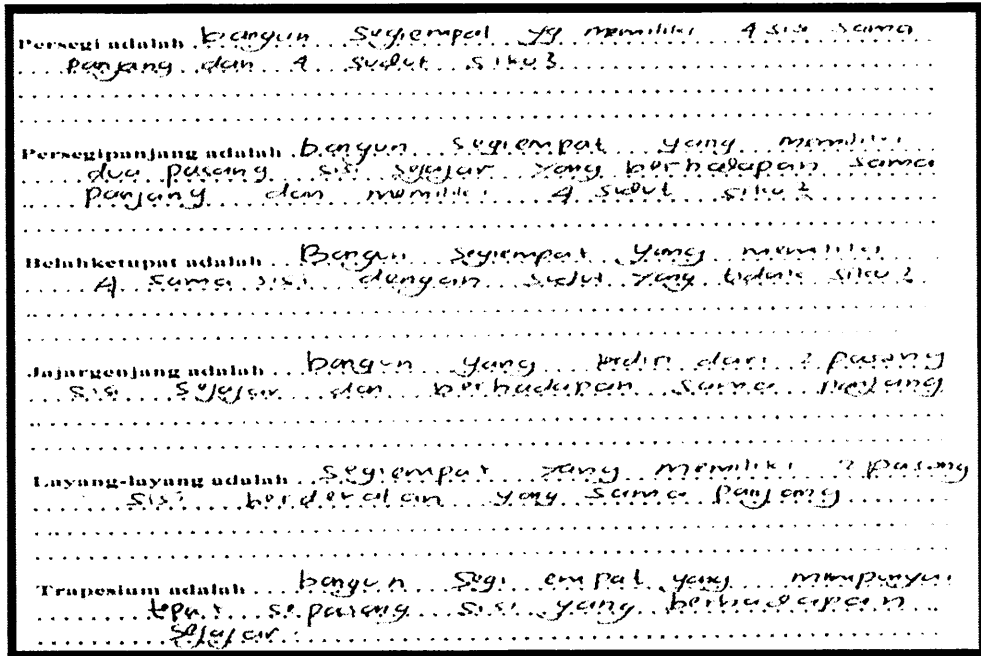 Persegi adalah bangun segiempat yg memiliki 4 sisi sama
panjang dan 4 sudut siku2
Persegipanjang adalah bangun segiempat yang memiliki
dua pasang sisi sejajar yang berhadapan sama
panjang dan memiliki 4 sudut siku2
Belahketupat adalah Bangun segiempat yang memiliki
4 sama sisi dengan sudut yang tidak siku2
Jajargenjang adalah bangun yang terdiri dari 2 pasang
sisi sejajar dan berhadapan sama panjang
Layang-layang adalah segiempat yang memiliki 2 pasang
sisi berdekatan yang sama panjang
Trapesium adalah bangun segi empat yang mempunyai
tepat sepasang sisi yang berhadapan
sejajar